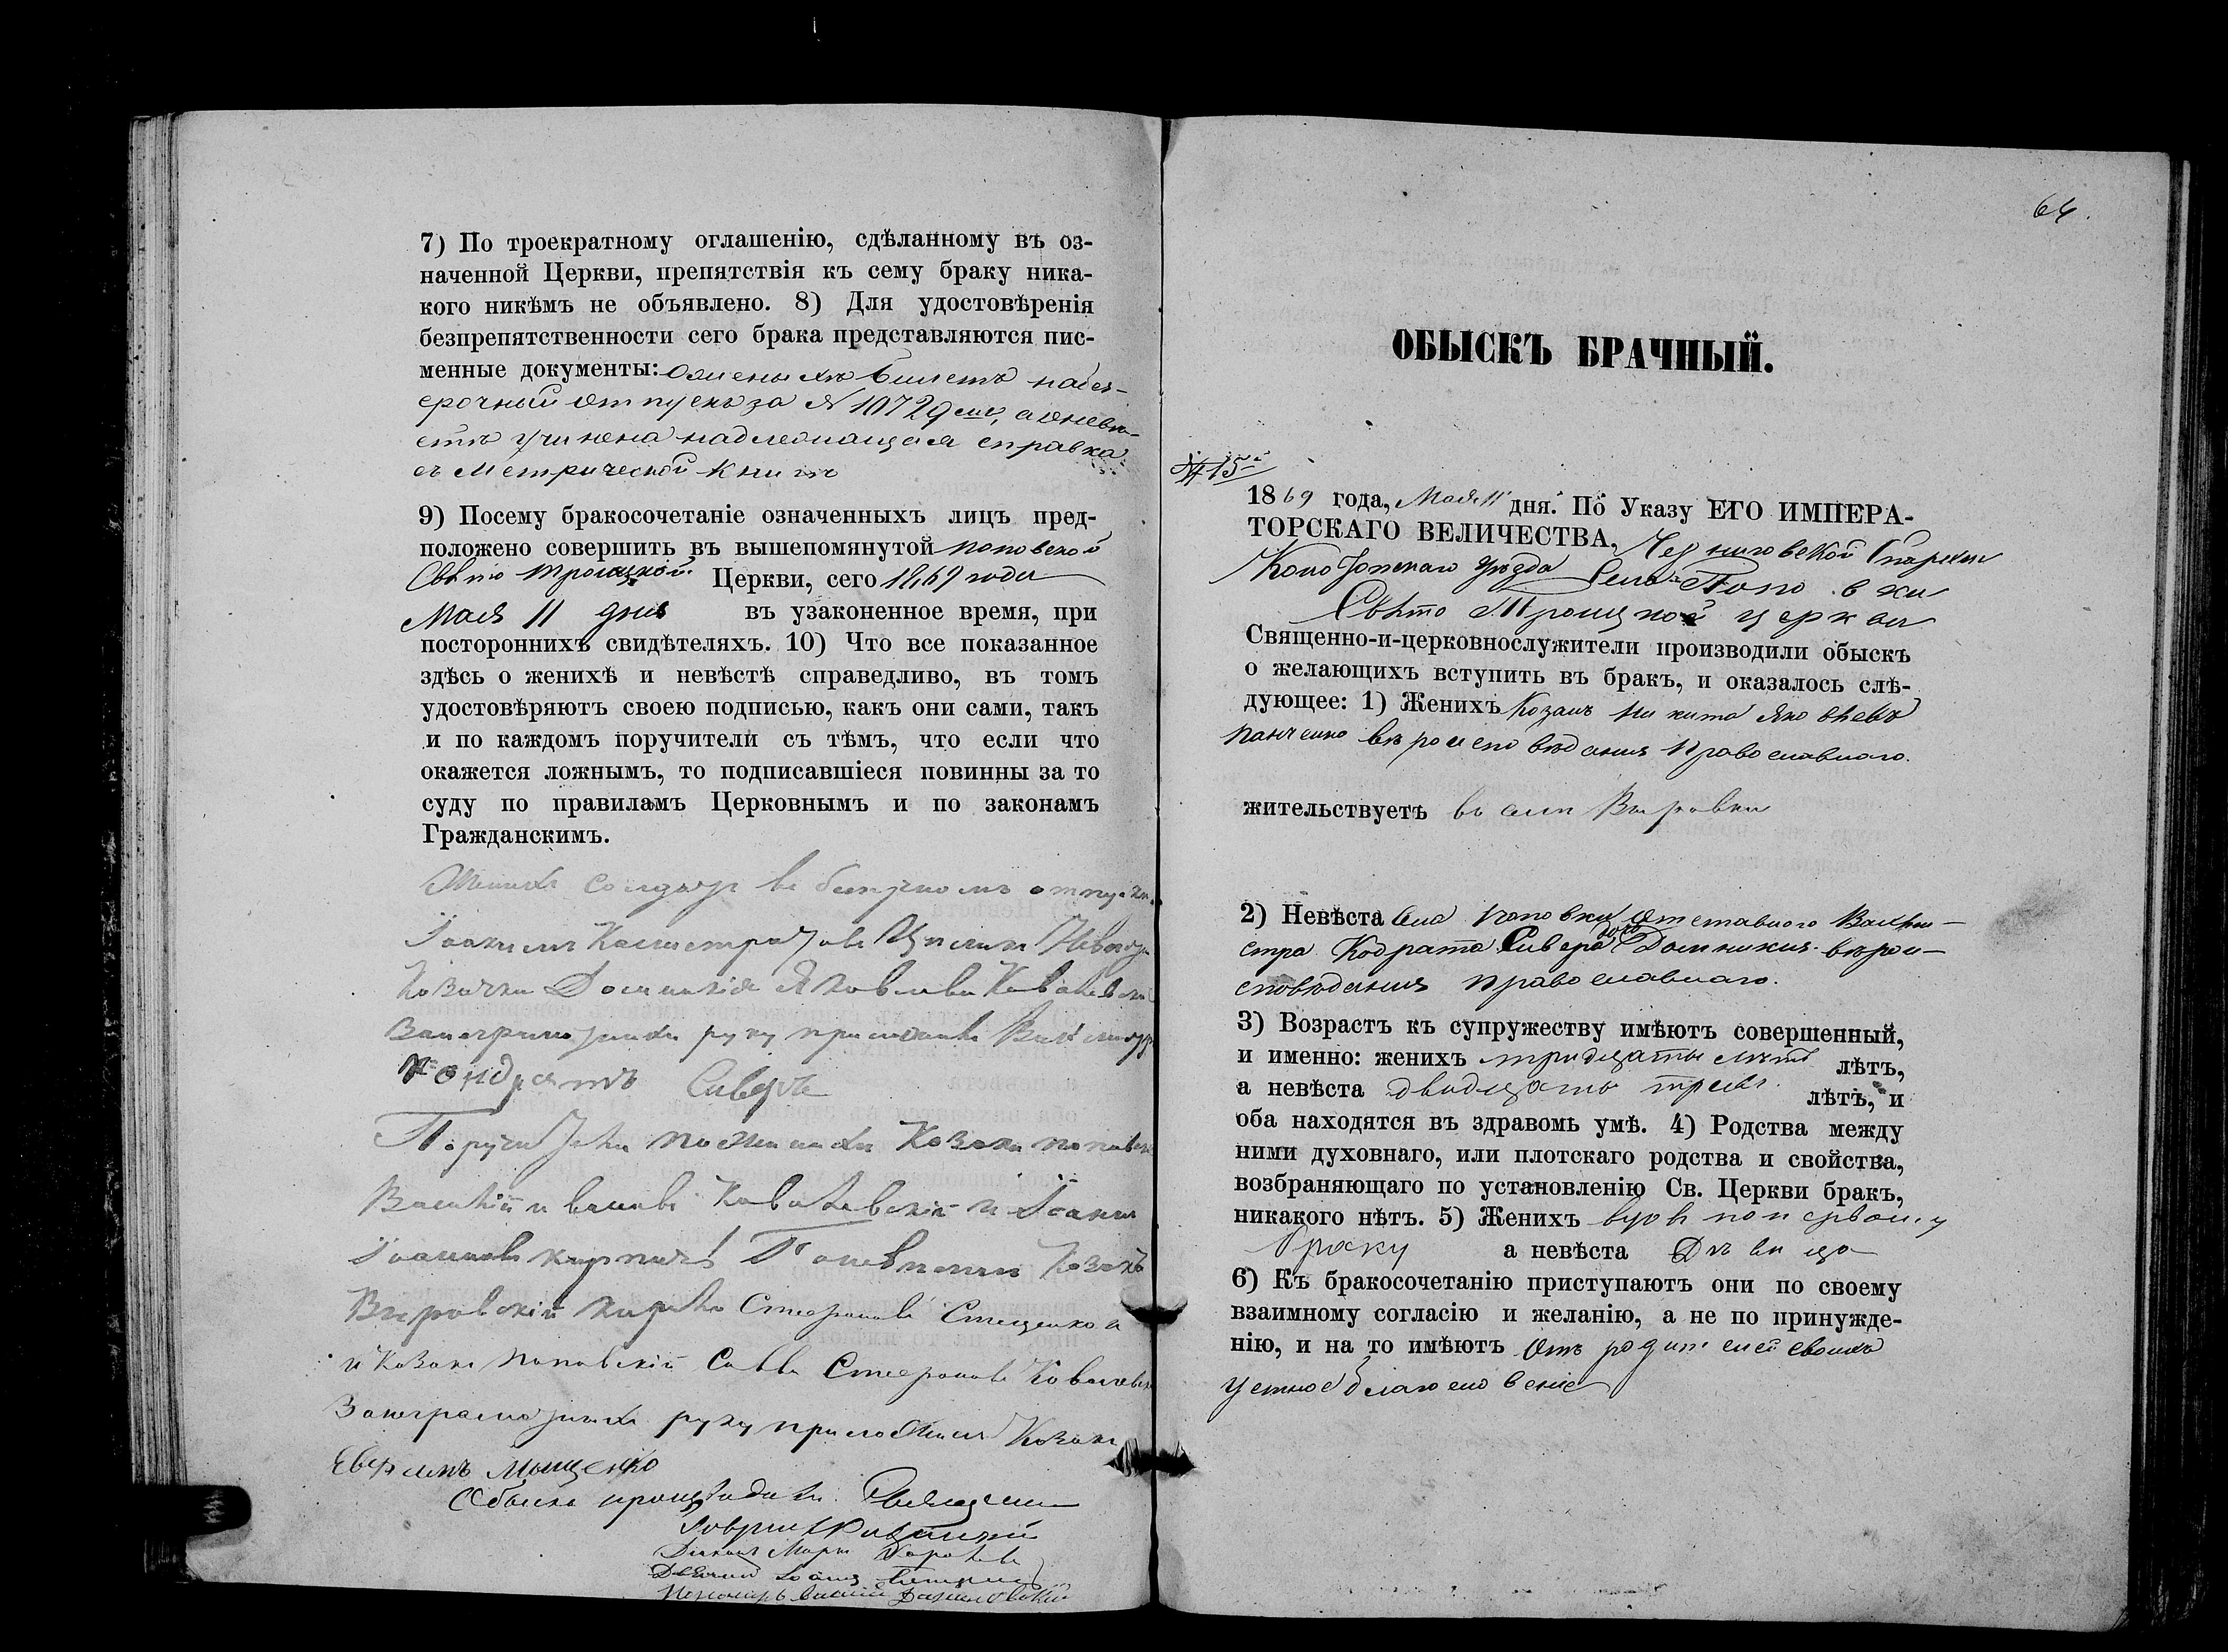 7) По троекратному оглашенію, сдѣланному въ оз-
наченной Церкви, препятствія къ сему браку ника-
кого никѣмъ не объявлено. 8) Для удостовѣренія
безпрепятственности сего брака представляются пис-
менные документы: билетъ на без-
срочный отпускъ за № 10729, а о невѣ-
стѣ учинена надлежащая справка
съ Метрической Книгѣ
9) Посему бракосочетаніе означенныхъ лицъ пред-
положено совершить въ вышепомянутой поповской
Свѣто Троицкой Церкви, сего 1869 года
Мая 11 дня въ узаконенное время, при
постороннихъ свидѣтеляхъ. 10) Что все показанное
здѣсь о женихѣ и невѣстѣ справедливо, въ томъ
удостовѣряютъ своею подписью, какъ они сами, такъ
и по каждомъ поручители съ тѣмъ, что если что
окажется ложнымъ, то подписавшіеся повинны за то
суду по правиламъ Церковнымъ и по законамъ
Гражданскимъ.
Женихъ Солдатъ в
Іоакимъ
Козачка Домникія Яковлева
руку приложилъ
Кондратъ Сиверъ
Поручители по женихѣ Козаки
Василій Ковалевскій и Іоаннъ
Іоанновъ По невѣстѣ Козакъ
Вировскій Стефановъ
и Козакъ поповскій Савва Стефановъ
руку приложилъ Козакъ
Евфимъ Мищенко
Обыскъ производили: Священникъ
Гавріилъ
Діаконъ Маркъ
Дьячекъ Іоаннъ
Пономарь
64.
ОБЫСКЪ БРАЧНЫЙ.
№ 15й
1869 года, Мая 11 дня. По Указу ЕГО ИМПЕРА-
ТОРСКАГО ВЕЛИЧЕСТВА, Черниговской Епархіи
Конотопскаго уѣзда Села Поповки
Свѣто Троицкой церкви
Священно-и-церковнослужители производили обыскъ
о желающихъ вступить въ бракъ, и оказалось слѣ-
дующее: 1) Женихъ Козакъ Никита Яковлевъ
Панченко вѣроисповѣданія Православнаго.
жительствуетъ въ селѣ Вировки
2) Невѣста села Поповки Отставного Вахми-
стра Кодрата Сивера дочь Домникия вѣрои-
сповѣдания православнаго.
3) Возрастъ къ супружеству имѣютъ совершенный,
и именно: женихъ тридцать лѣтъ,
а невѣста двадцать лѣтъ, и
оба находятся въ здравомь умѣ. 4) Родства между
ними духовнаго, или плотскаго родства и свойства,
возбраняющаго по установленію Св. Церкви бракъ,
никакого нѣтъ. 5) Женихъ вдов по первому
браку а невѣста Дѣвица
6) Къ бракосочетанію приступаютъ они по своему
взаимному согласію и желанію, а не по принужде-
нію, и на то имѣютъ Отъ родителей своихъ
устное благословеніе